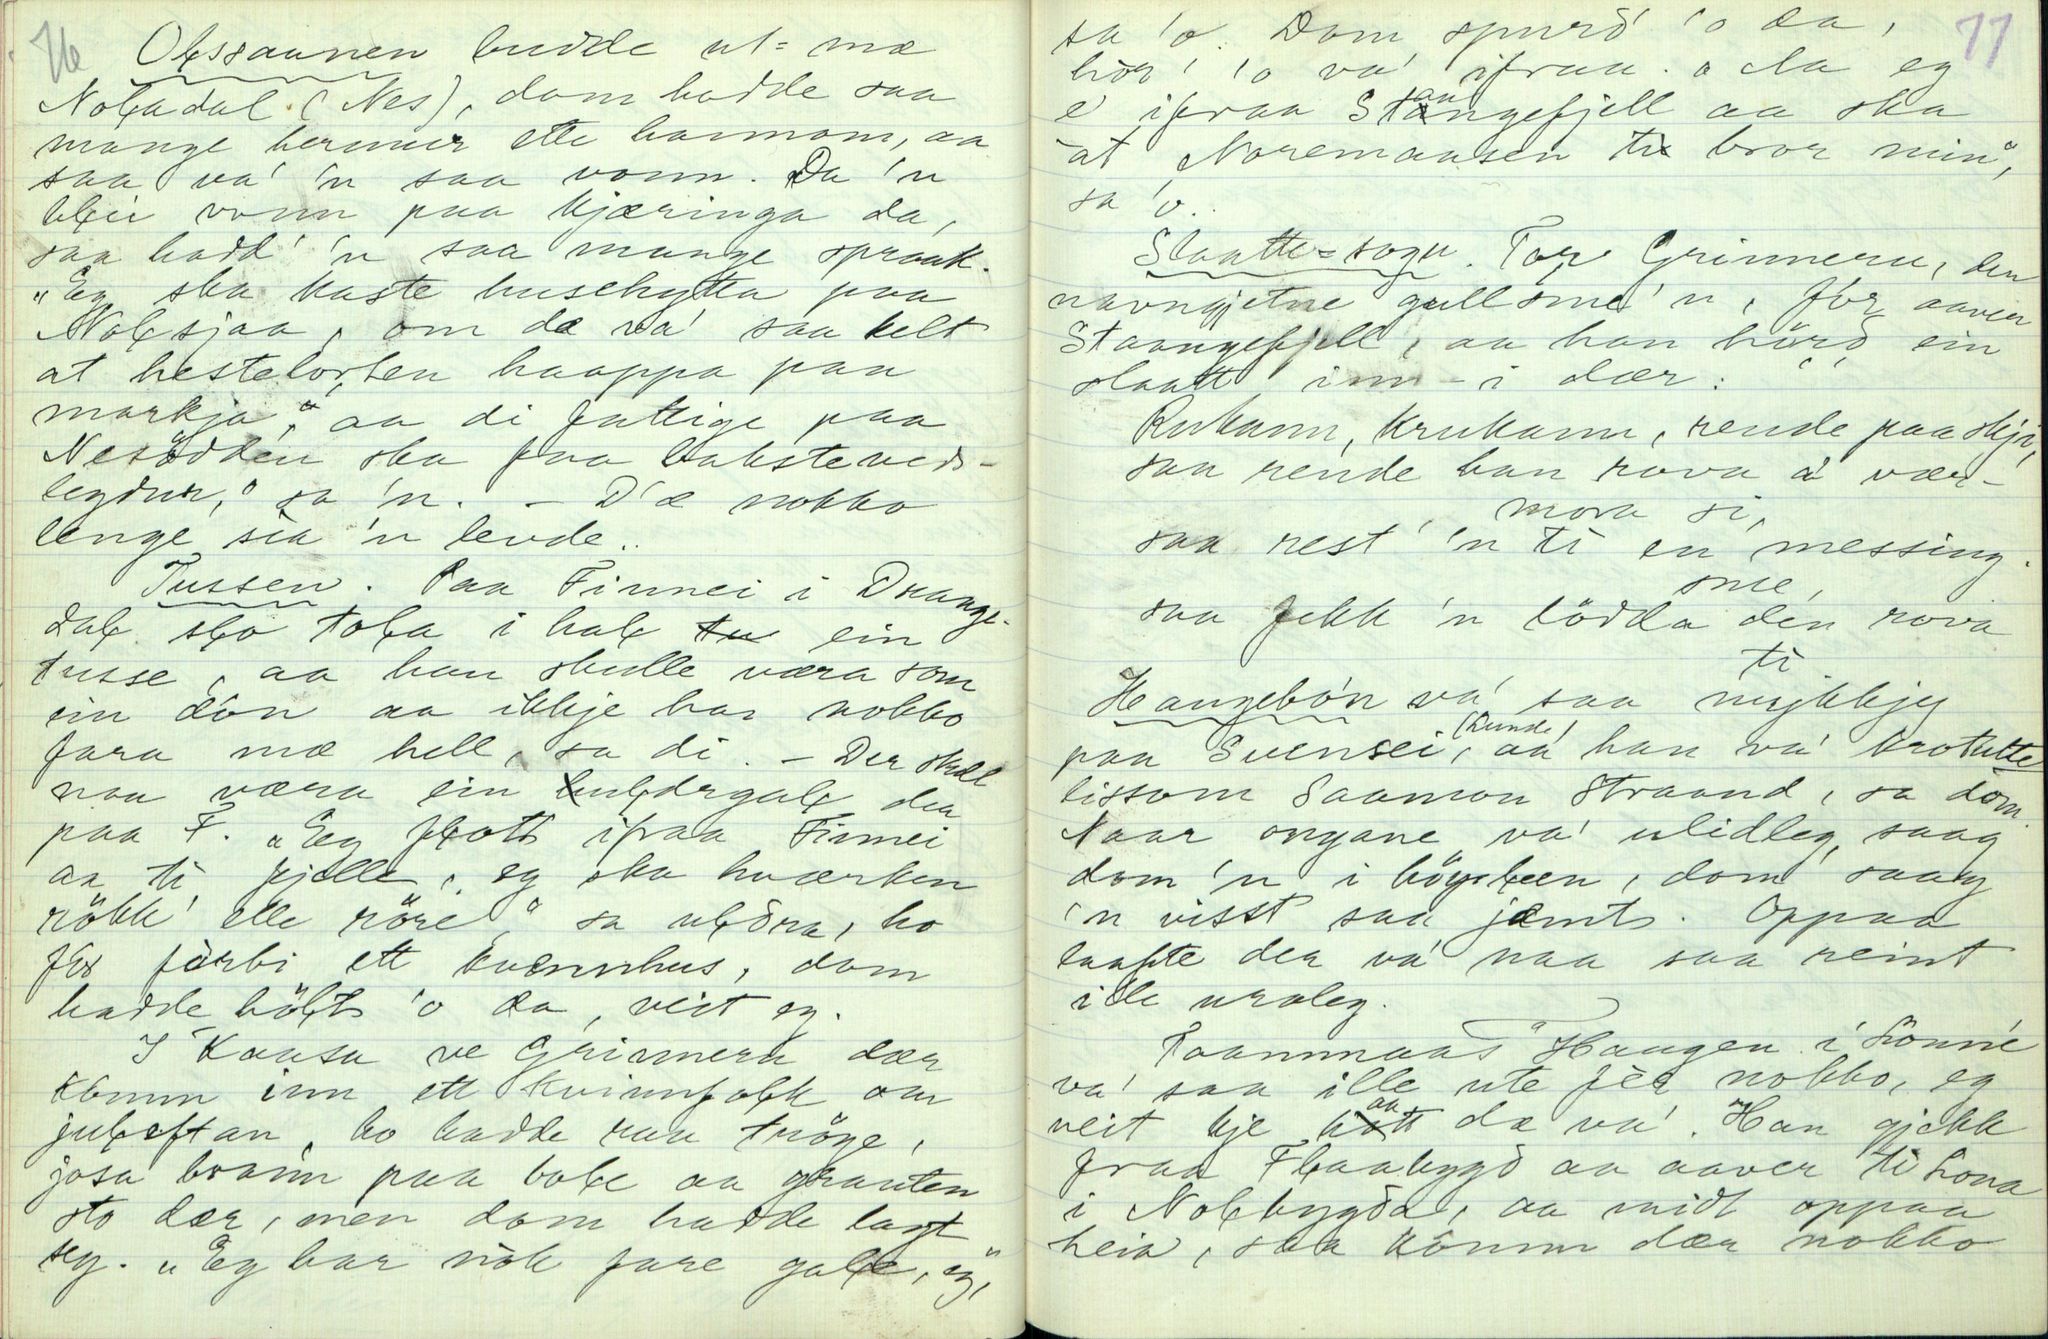 76
Olessaunen budde ut-mæ
Noladal (Nes), dom hadde saa
mange hermur ette hannom, aa
saa va' 'n saa vonn. Da 'n
blei vonn paa kjæringa da,
saa hadd' 'n saa mange spraak.
"Eg ska kaste husehytta paa
Nolsjaa, om dæ va' saa kelt
at hestelorten haappa paa
markja," aa di fattige paa
Nesödden ska faa baksteveds-
legdur," sa 'n. - D'æ nokko
lenge sia 'n levde.
Tussen. Paa Finnei i Drange-
dal slo tola i hal ein
tusse, aa han skulle væra som
ein dön aa ikkje har nokko
fara mæ hell, sa di. - Der skul
naa væra ein huldrgale der
paa F. "Eg flott ifraa Finnei
aa ti fjelle, eg ska hværken
rökk' elle röre," sa uldra, ho
for förbi ett kvennhus, dom
hadde hölt 'o da, veit eg.
I Kaasa ve Grinneru dær
komm inn ett kvinnfolk om
juleftan, ho hadde rau tröge,
josa brann paa bole aa grauten
sto dær, men dom hadde lagt
seg. "Eg har nok fare gale, eg,"
77
sa 'o. Dom spurd' 'o da,
hör' 'o va' ifraa. "Aa eg
e' ifraa Staangefjell aa ska
at Noremaasen ti bror min",
sa 'o.
Slaatte-sogu. Tor Grinneru, den
navngjetne gullsme'n, för aaver
Staangefjell, aa han hörd ein
slaatt inn-i dær:
Rukann, krukann, rende paa skji,
saa rende han rova å vær-
mora si,
saa rest' 'n ti en messing-
sme,
saa fekk 'n lödda den rova
ti
Haugebo'n va' saa mykkjy
paa Svensei, (Lunde) aa han va' krotutte
lissom Saamon Straand, sa dom.
Naar ongane va' ulidleg, saag
dom 'n i högsleen, dom saag
'n visst saa jamt. Oppaa
laafte der va' naa saa reint
ille uroleg.
Taammaas Haugen i Lönné
va' saa ille ute fer nokko, eg
veit kje haatt dæ va'. Han gjekk
fraa Flaabygd aa aaver ti Lona
i Nolbygda, aa midt oppaa
heia, saa komm dær nokko